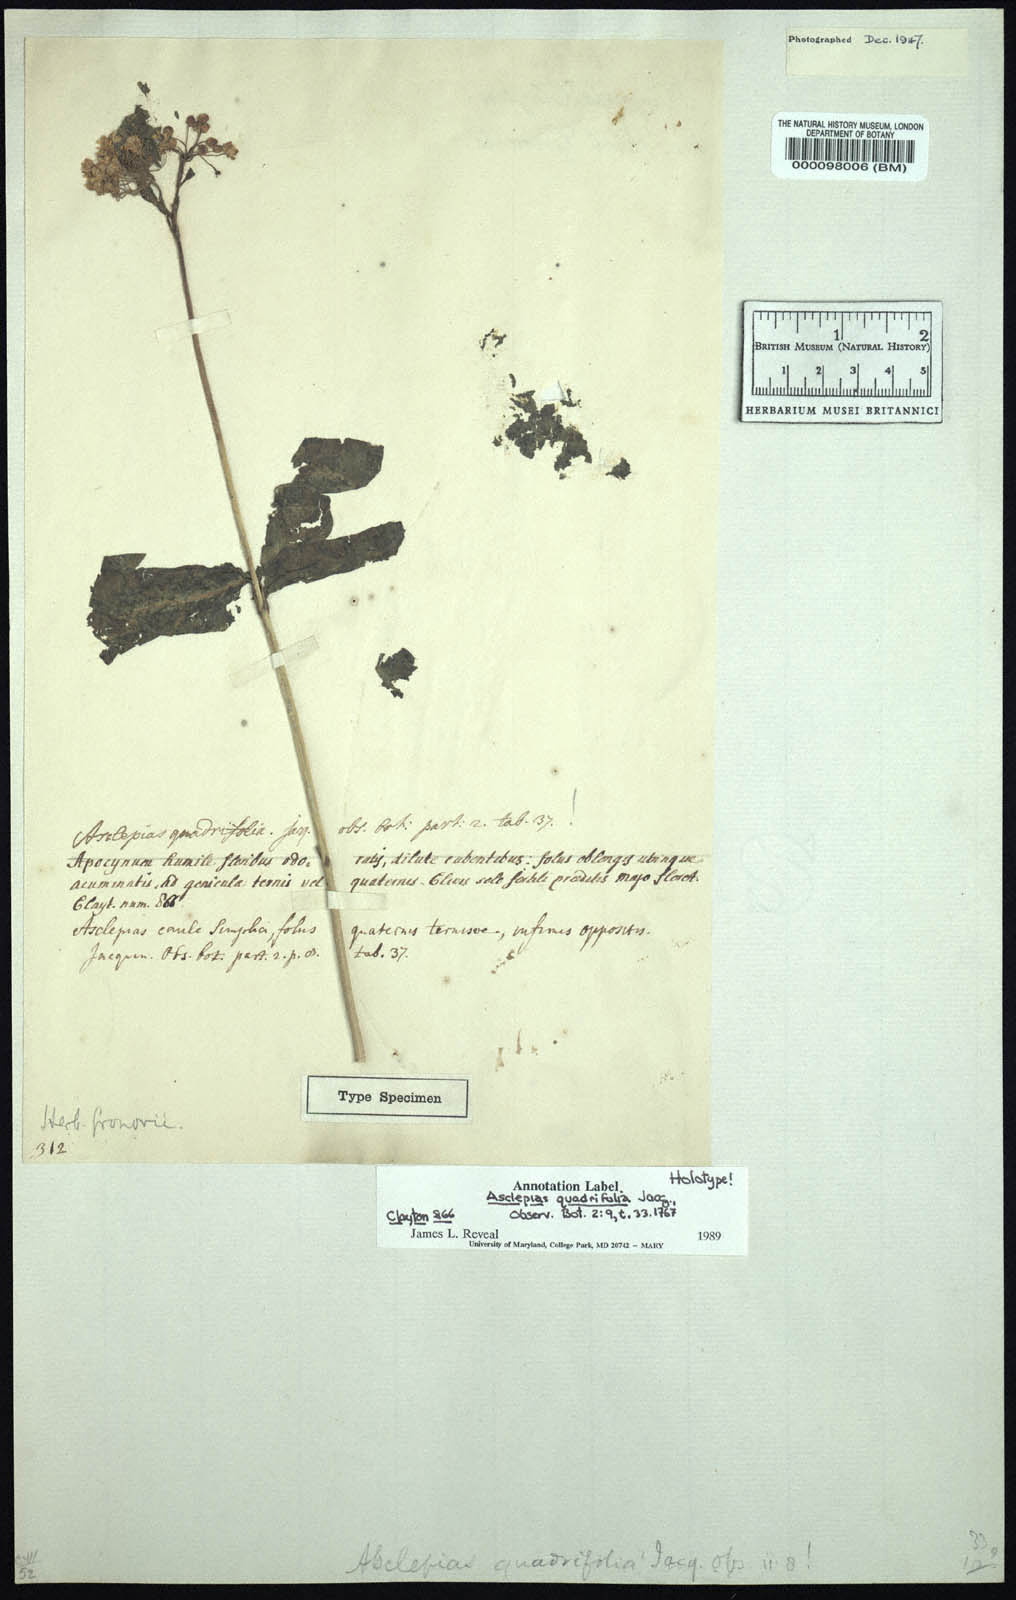 Photographed Dec. 1947.
THE NATURAL HISTORY MUSEUM, LONDON
DEPARTMENT OF BOTANY
000098006 (BM)
1 2
BRITISH MUSEUM (NATURAL HISTORY)
1 2 3 4 5
HERBARIUM MUSEI BRITANNICI
Asclepias quadrifolia. Jacq. obs. bot. part. 2. tab. 37. !
Apocynum humile floribus odoratis, dilute rubentibus: foliis oblongis utrinque
acuminatis, ad genicula ternis vel quaternis. Glareoso solo
Clayt. num. 866
Asclepias caule simplici, foliis quaternis ternisve, infimis oppositis.
Jacquin. Obs. bot. part. 2. p. 8. tab. 37.
Type Specimen
Herb. Gronovii.
312
Holotype!
Annotation Label
Asclepias quadrifolia Jacq.,
Clayton 866 Observ. Bot. 2: 9, t. 33. 1767
James L. Reveal 1989
University of Maryland, College Park, MD 20742 – MARY
52
Asclepias quadrifolia Jacq. Obs. ii. 8 !